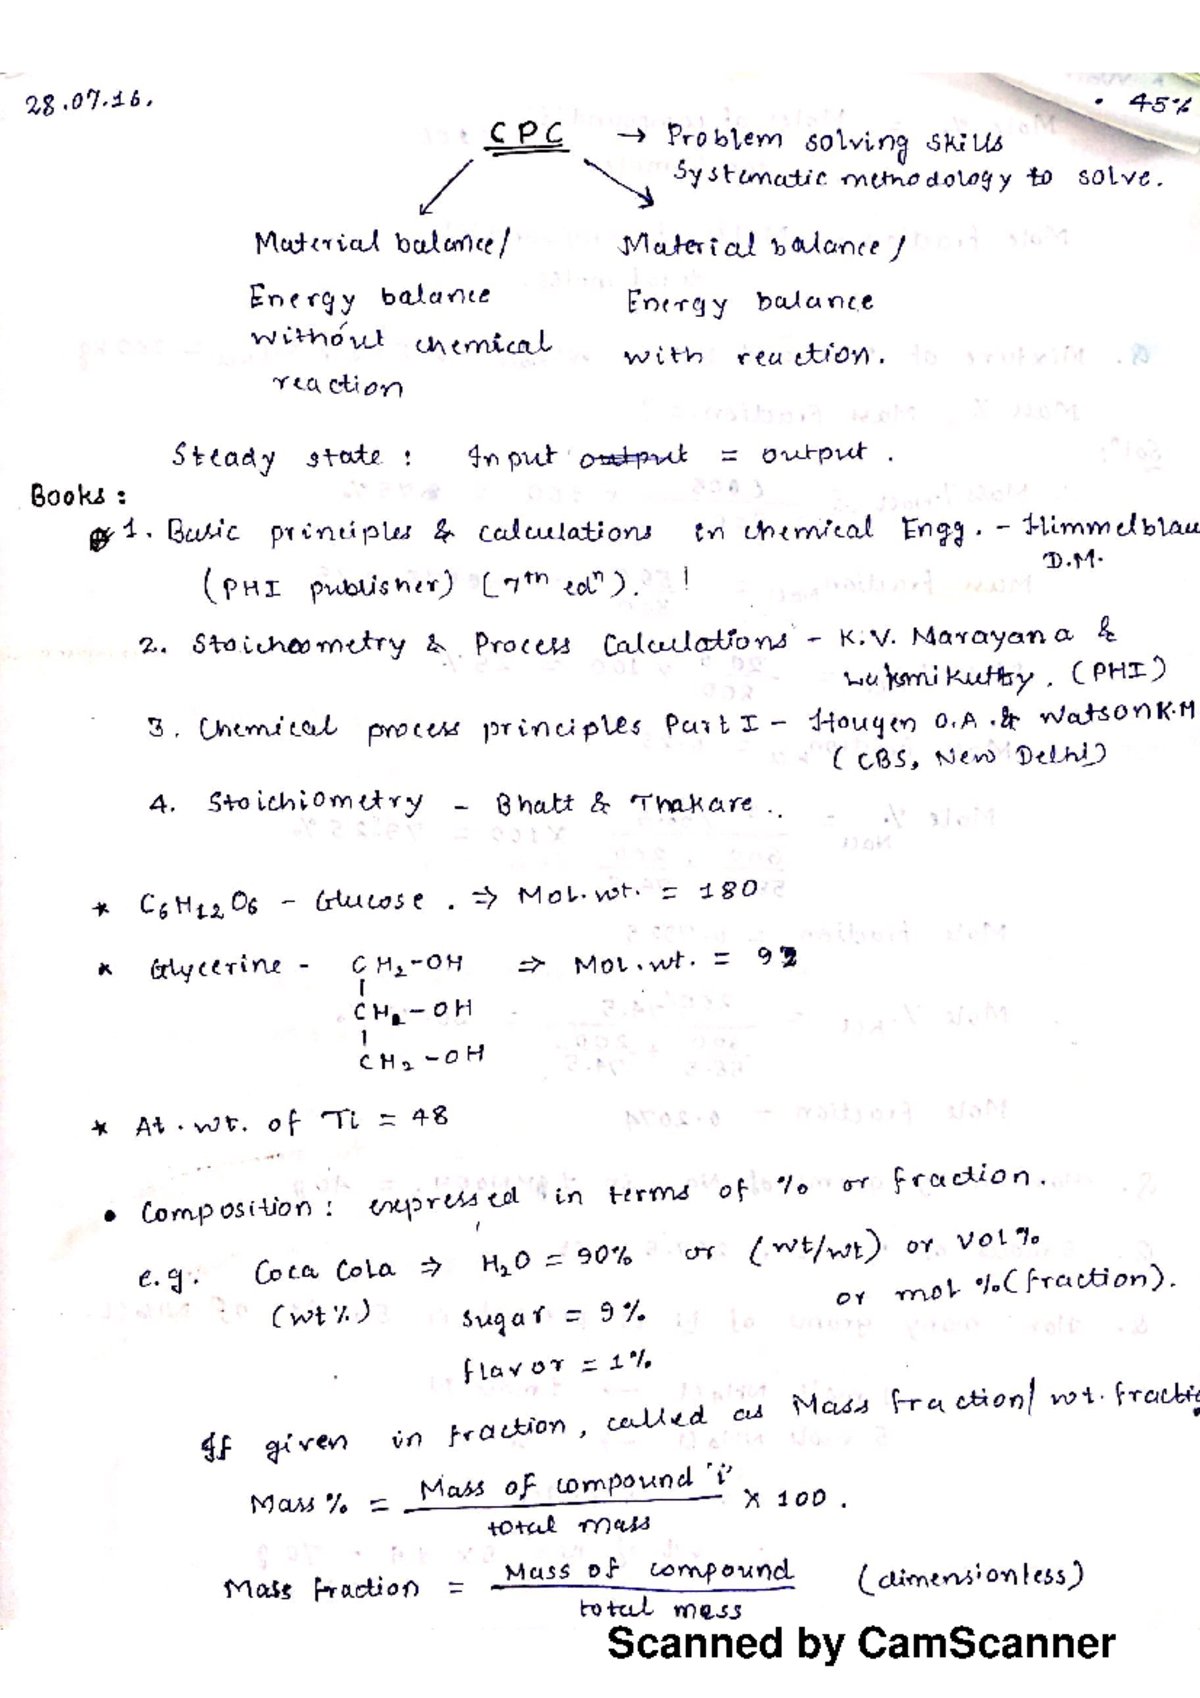 28.07.16.
45%
CPC → Problem solving skills
Systematic methodology to solve.
Material balance/ Material balance/
Energy balance Energy balance
without chemical with reaction.
reaction
Steady state : Input output = output.
Books :
1. Basic principles & calculations in chemical Engg. - Himmelblau
D.M.
(PHI publisher) (7th edn). !
2. Stoicheometry & Process Calculations - K.V. Narayana &
Lakmikutty. (PHI)
3. Chemical process principles Part I - Hougen O.A. & Watson K.M
(CBS, New Delhi)
4. Stoichiometry - Bhatt & Thakare..
* C6H12O6 - Glucose. ⇒ Mol.wt. = 180
* Glycerine - CH2-OH ⇒ Mol.wt. = 92
CH2-OH
CH2-OH
* At.wt. of Ti = 48
• Composition : expressed in terms of % or fraction.
e.g. Coca Cola ⇒ H2O = 90% or (wt/wt) or vol %
(wt%) sugar = 9% or mol % (fraction).
flavor = 1%
If given in fraction, called as Mass fraction/ wt. fractio
Mass % = Mass of compound 'i' / total mass × 100.
Mass fraction = Mass of compound / total mess (dimensionless)
Scanned by CamScanner